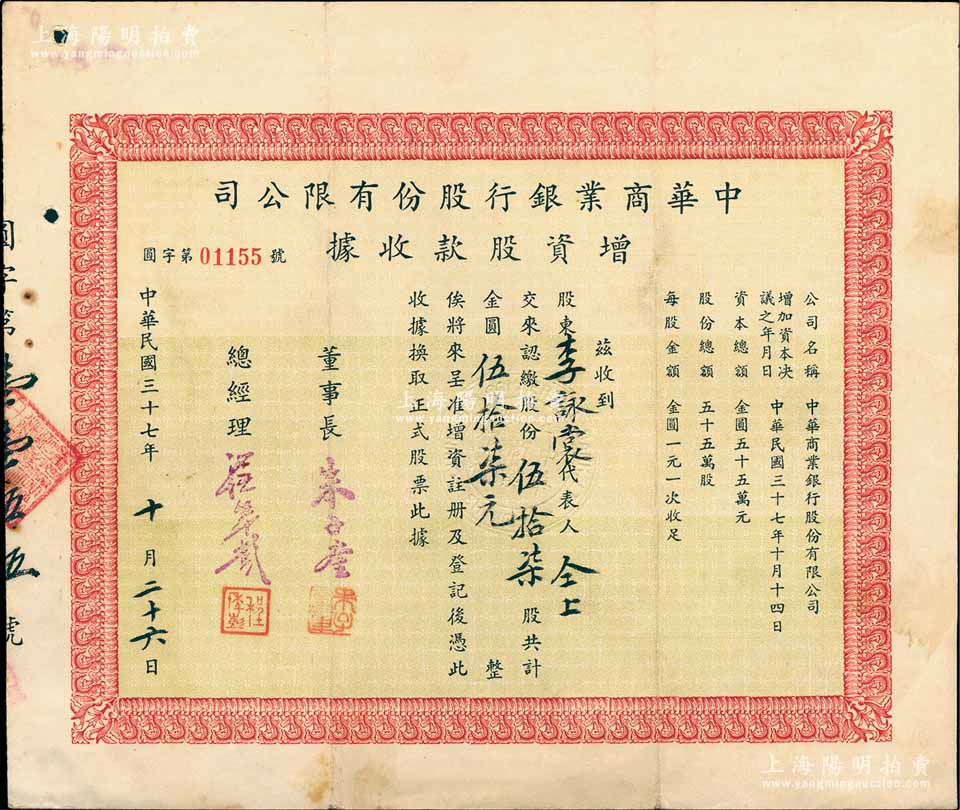 上海陽明拍賣
www.yangmingauction.com
上海陽明拍賣
www.yangmingauction.com
中華商業銀行股份有限公司
增資股款收據
圓字第01155號
公司名稱 中華商業銀行股份有限公司
增加資本决議之年月日 中華民國三十七年十月十四日
資本總額 金圓五十五萬元
股份總額 五十五萬股
每股金額 金圓一元一次收足
茲收到
股東李詠裳代表人 仝上
交來認繳股份 伍拾柒 股共計
金圓 伍拾柒元 整
俟將來呈准增資註册及登記後憑此
收據換取正式股票此據
董事長
總經理
中華民國三十七年 十 月 二十六 日
圓字第壹壹伍伍號
上海陽明拍賣
www.yangmingauction.com
上海陽明拍賣
www.yangmingauction.com